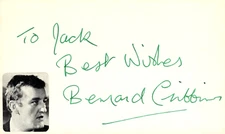 To Jack
Best Wishes
Bernard Cribbins